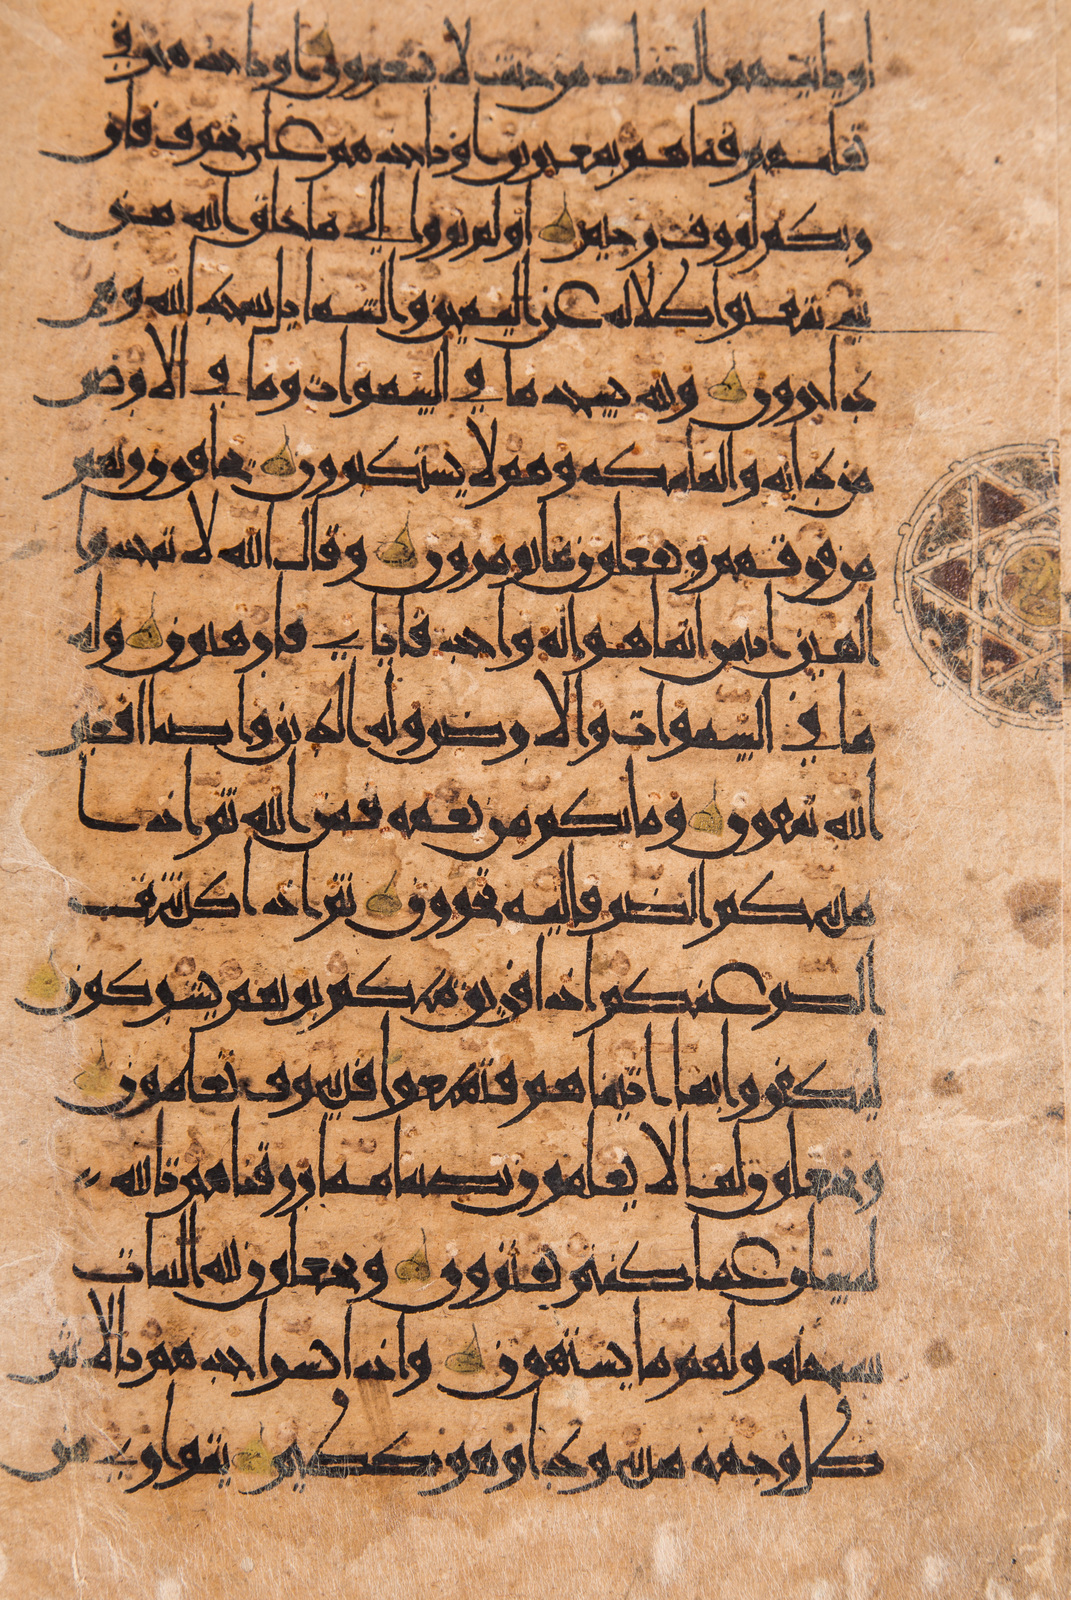 او ياتيهم العذاب من حيث لا يشعرون او ياخذهم في
تقلبهم فما هم بمعجزين او ياخذهم على تخوف فان
ربكم لرووف رحيم اولم يروا الى ما خلق الله من
شي يتفيوا ظلاله عن اليمين والشمايل سجدا لله وهم
داخرون ولله يسجد ما في السموات وما في الارض
من دابه والملىكه وهم لا يستكبرون يخافون ربهم
من فوقهم ويفعلون ما يومرون وقال الله لا تتخذوا
الهين اثنين انما هو اله واحد فاياي فارهبون وله
ما في السموات والارض وله الدين واصبا افغير
الله تتقون وما بكم من نعمه فمن الله ثم اذا
مسكم الضر فاليه تجرون ثم اذا كشف
الضر عنكم اذا فريق منكم بربهم يشركون
ليكفروا بما اتيناهم فتمتعوا فسوف تعلمون
ويجعلون لما لا يعلمون نصيبا مما رزقناهم تالله
لتسلن عما كنتم تفترون ويجعلون لله البنات
سبحنه ولهم ما يشتهون واذا بشر احدهم بالانثى
ظل وجهه مسودا وهو كظيم يتوارى من